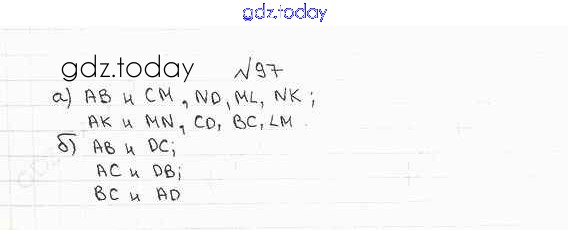 gdz.today
gdz.today №97
а) AB и CM, ND, ML, NK;
AK и MN, CD, BC, LM.
б) AB и DC;
AC и DB;
BC и AD